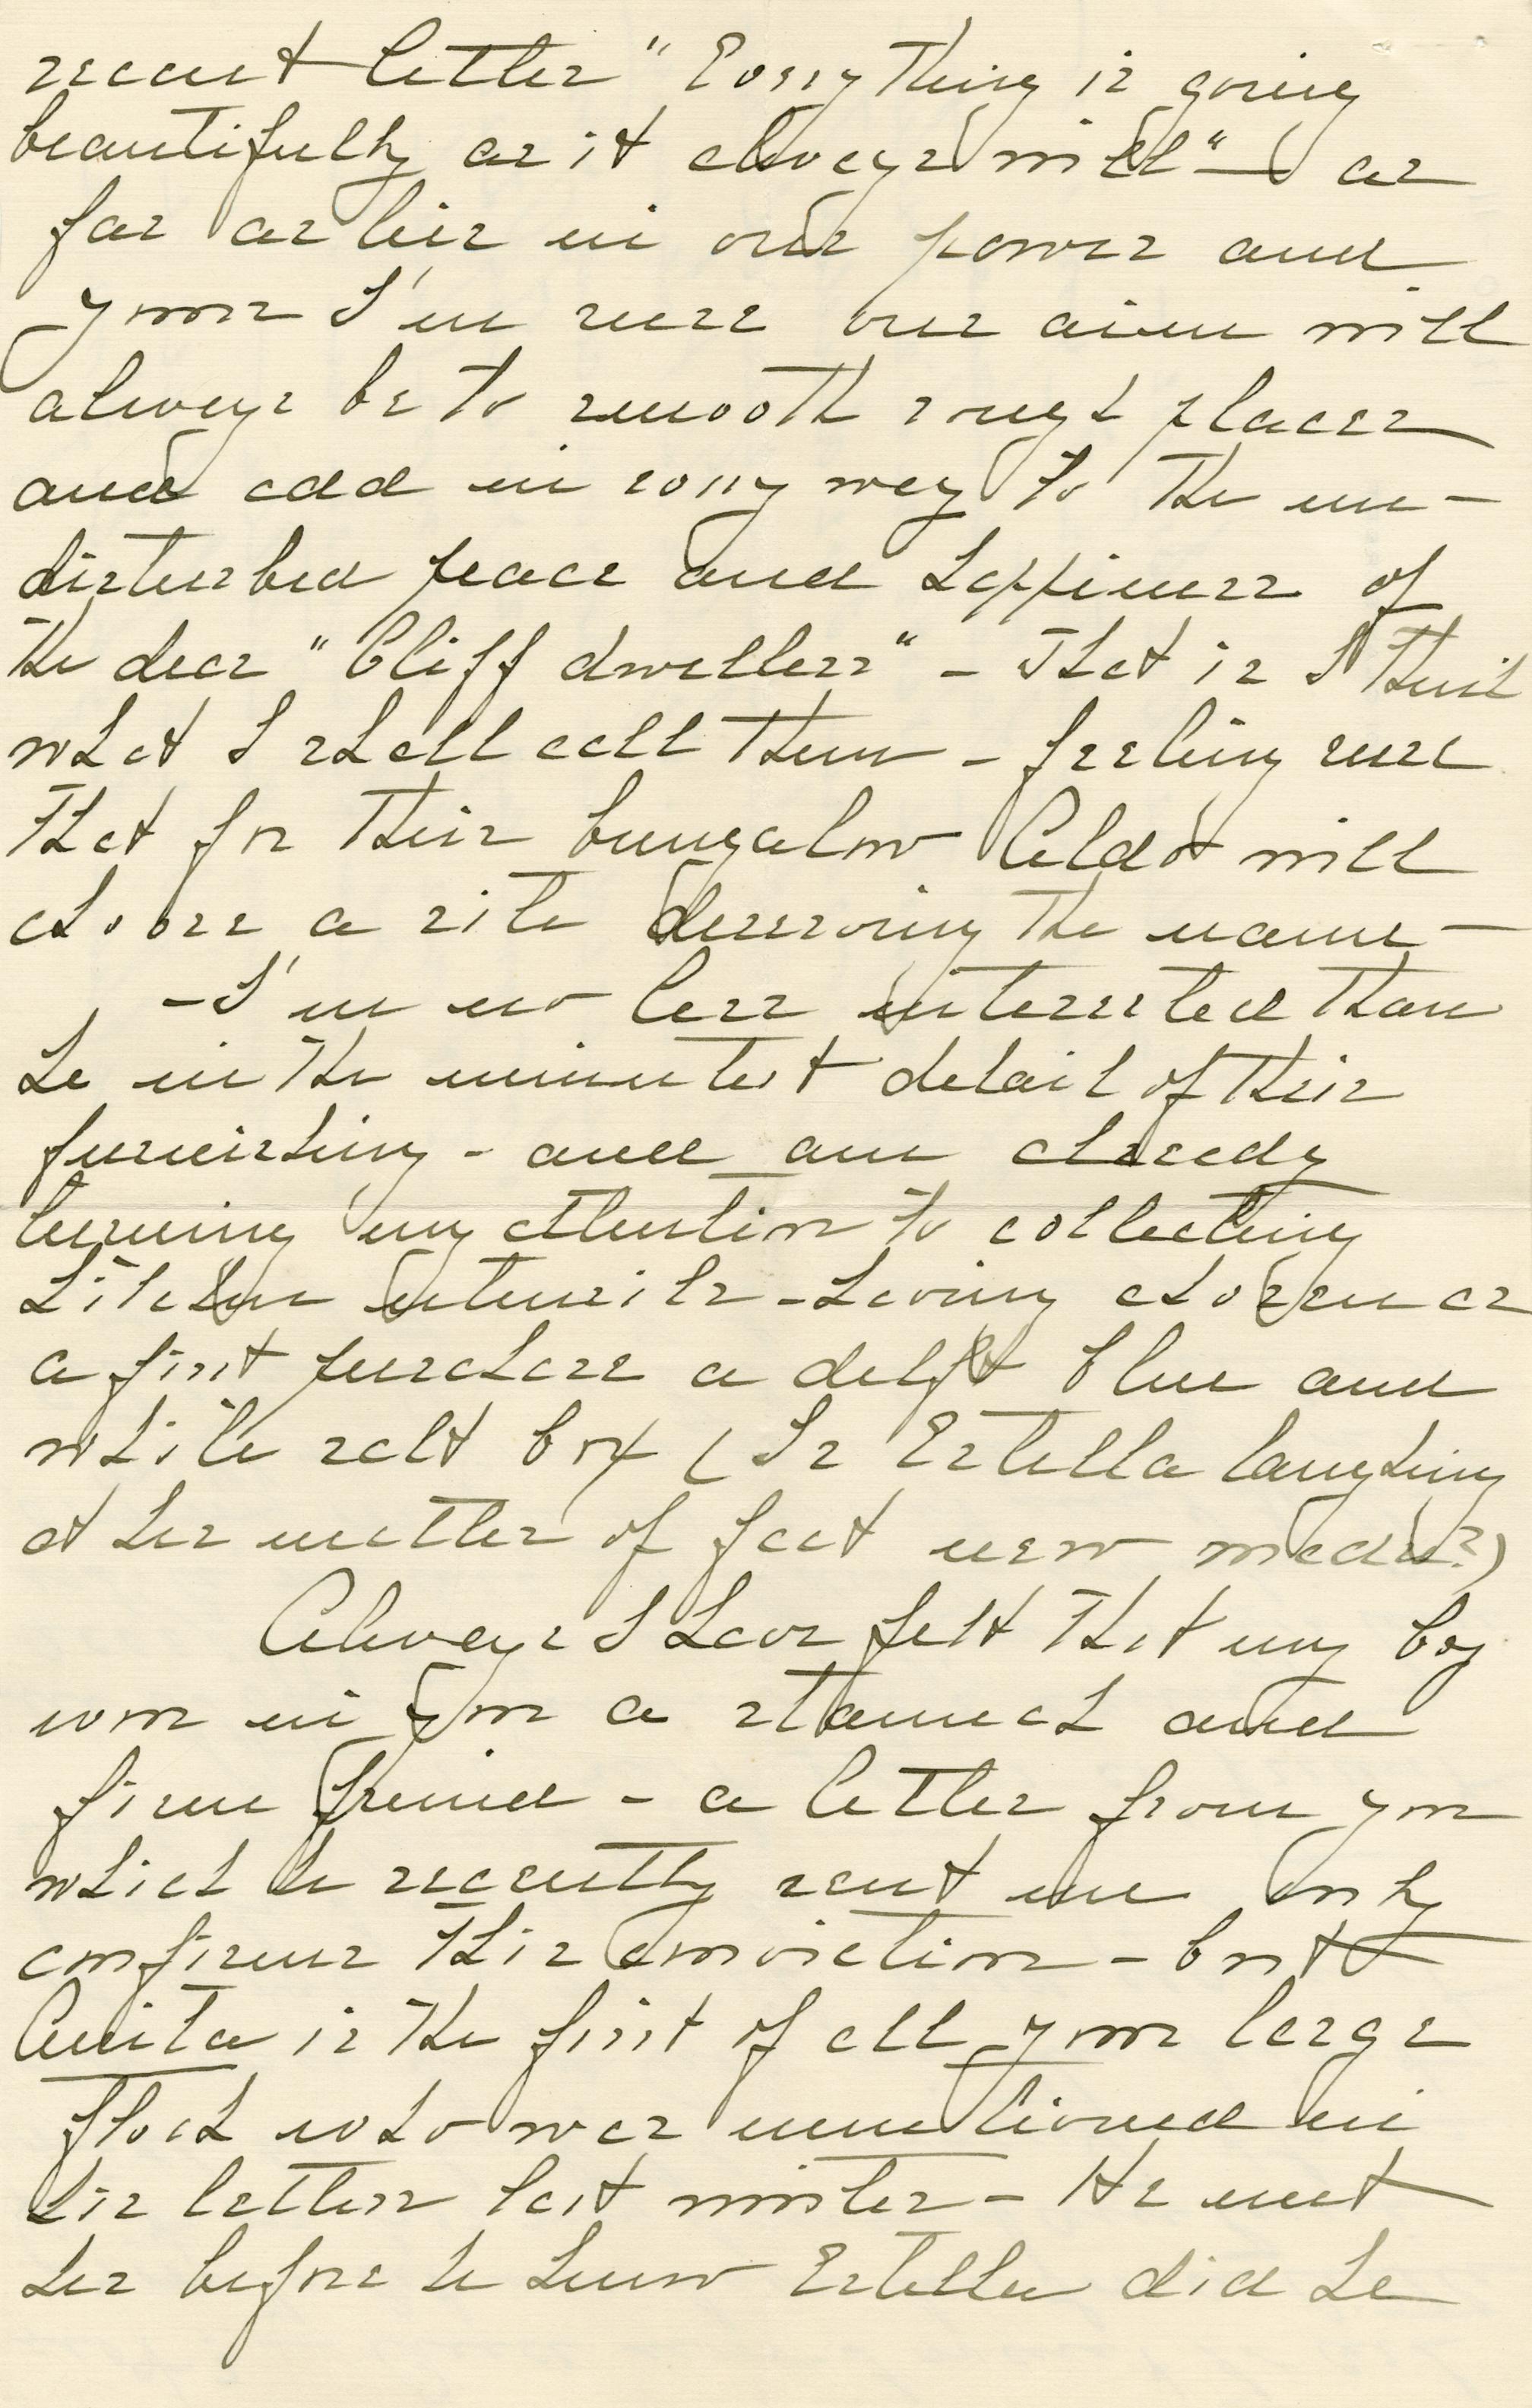 recent letter "Everything is going
beautifully as it always will" — as
far as lies in our power and
yours I'm sure our aim will
always be to smooth rough places
and add in every way to the un-
disturbed peace and happiness of
the dear "Cliff dwellers" - That is I think
what I shall call them - feeling sure
that for their bungalow Aldo will
choose a site deserving the name -
- I'm no less interested than
he in the minutest detail of their
furnishing - and am already
turning my attention to collecting
kitchen utensils - having chosen as
a first purchase a delft blue and
white salt box (Is Estella laughing
at her matter of fact new madre?)
Always I have felt that my boy
won in you a stanch and
firm friend - a letter from you
which he recently sent me only
confirms this conviction - but
Anita is the first of all your large
flock who was mentioned in
his letters last winter - He met
her before he knew Estella did he